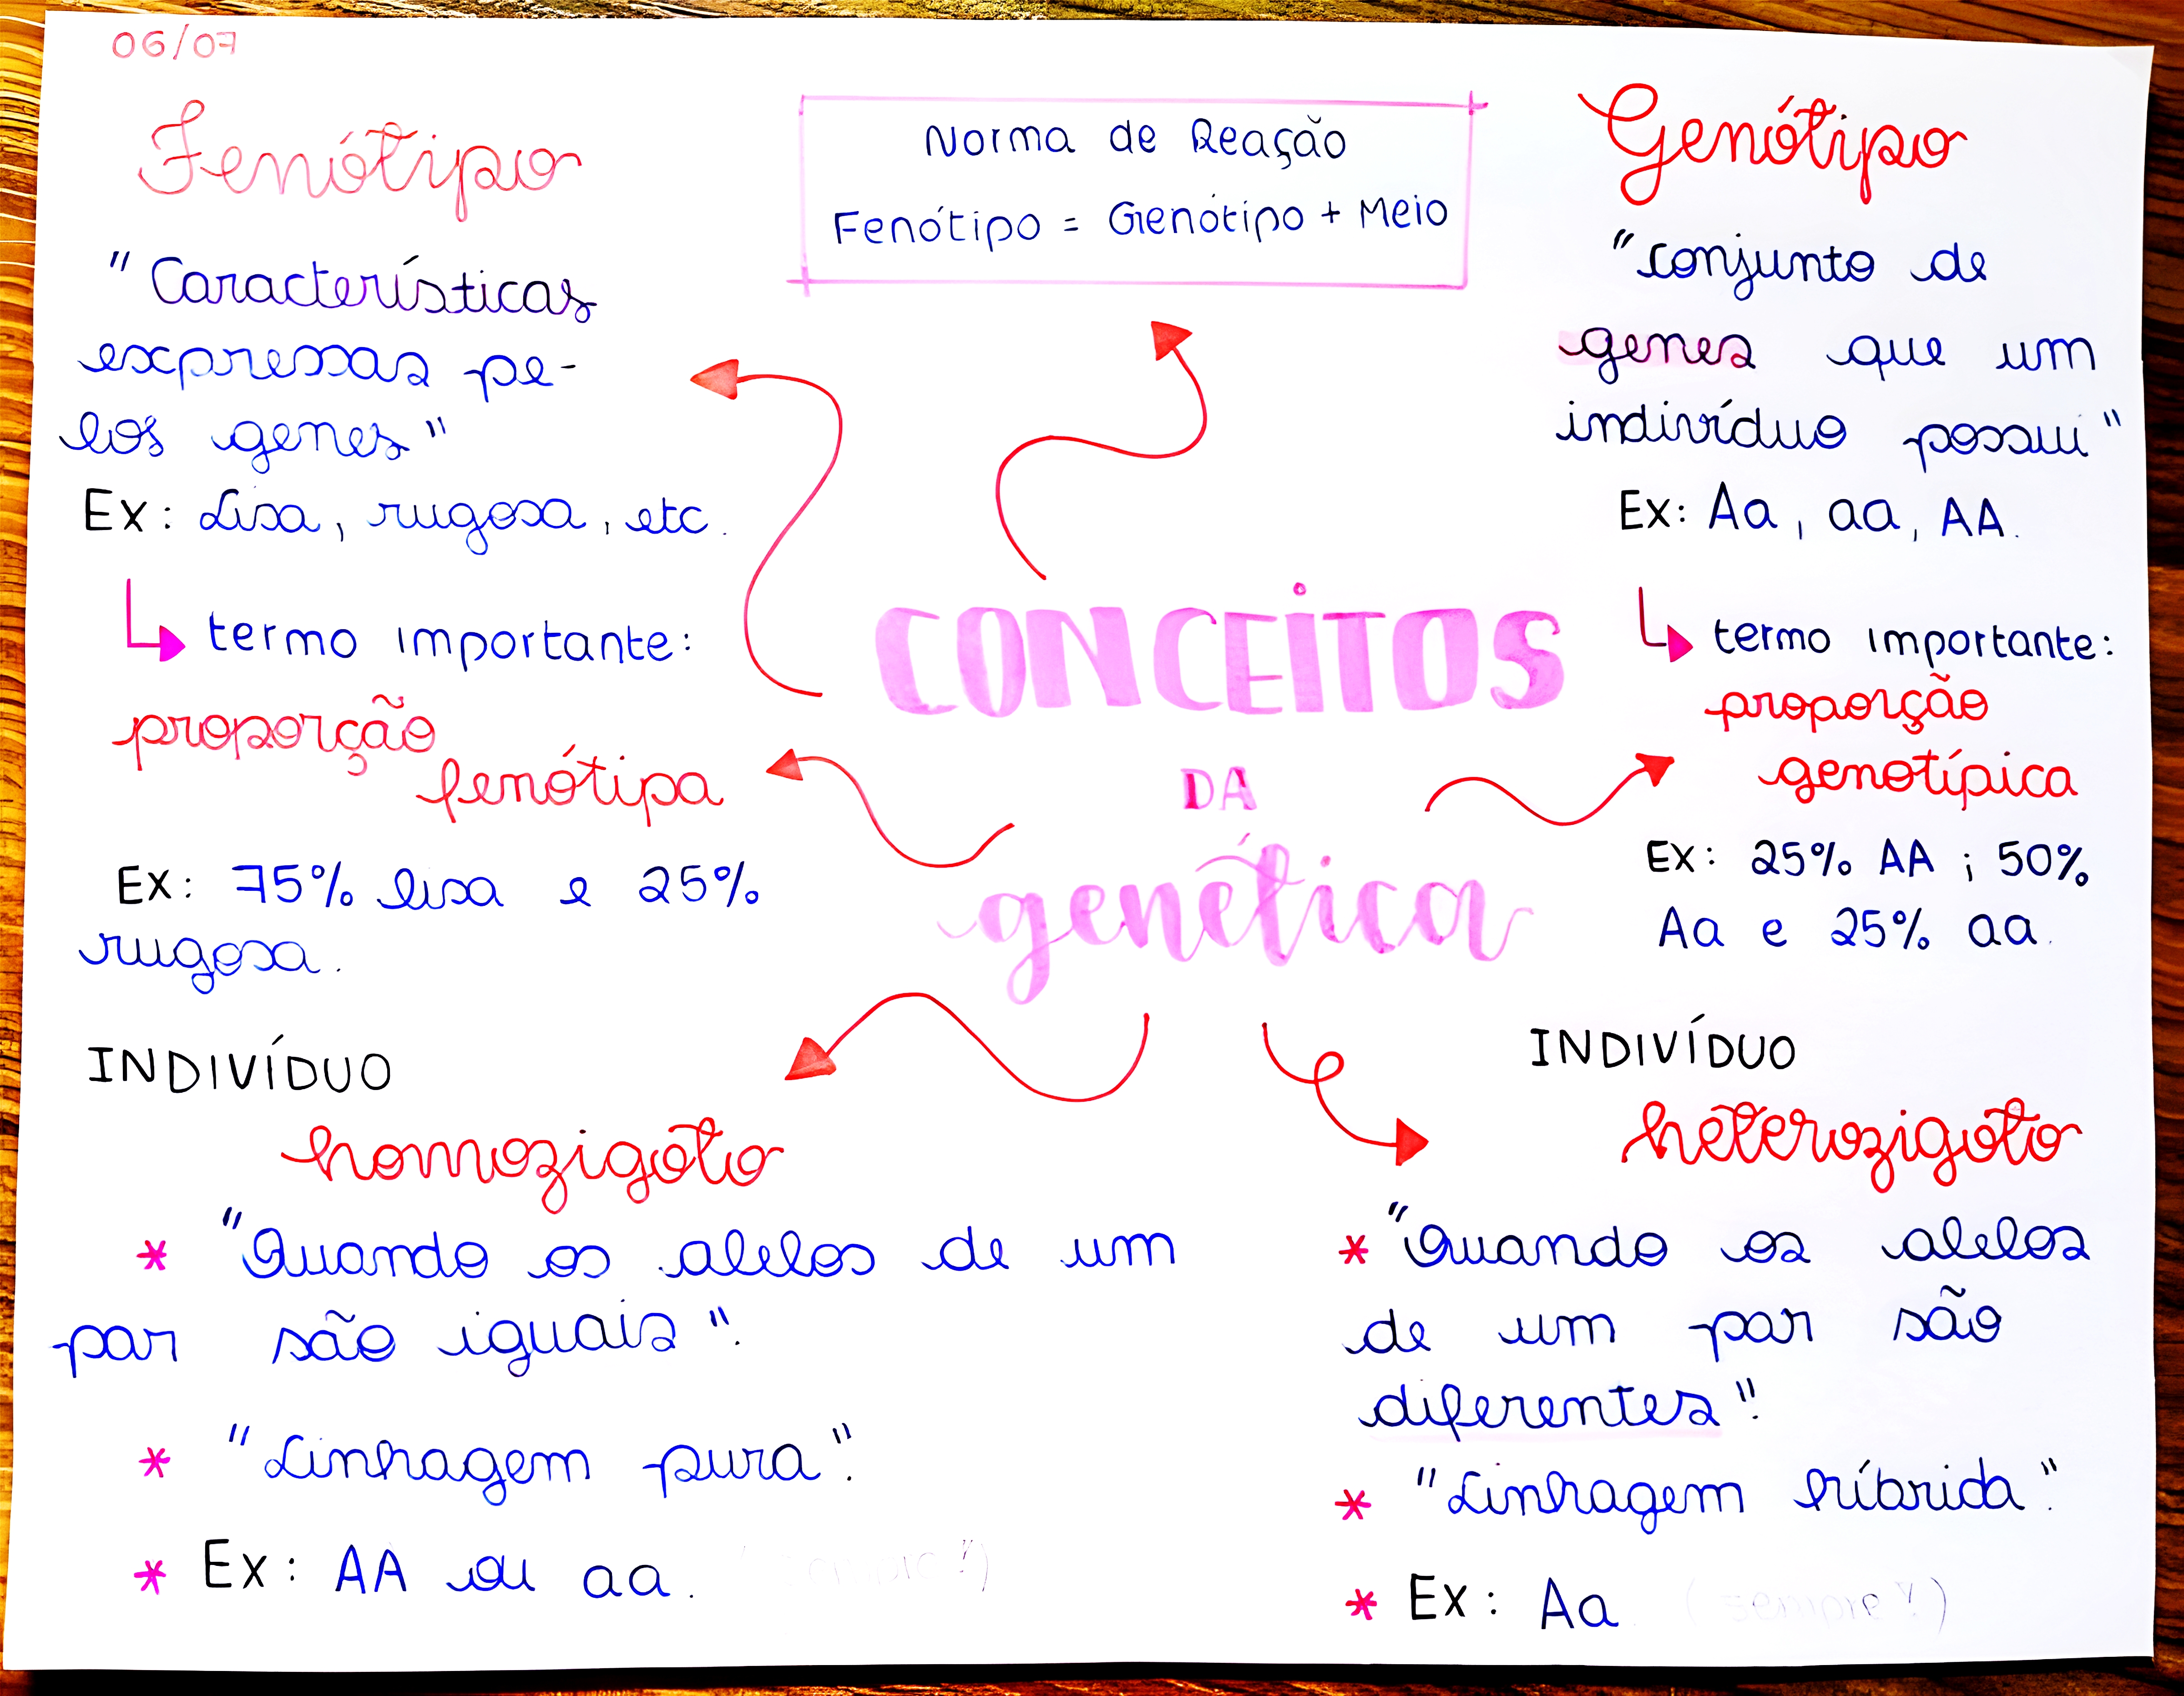 06/07
Fenótipo
"Características
expressas pe-
los genes"
Ex: Lisa, rugosa, etc.
termo importante:
proporção
fenótipa
Ex: 75% lisa e 25%
rugosa.
Norma de Reação
Fenótipo = Genótipo + Meio
Genótipo
"conjunto de
genes que um
indivíduo possui"
Ex: Aa, aa, AA.
termo importante:
proporção
genotípica
Ex: 25% AA ; 50%
Aa e 25% aa.
CONCEITOS
DA
genética
INDIVÍDUO
homozigoto
* "Quando os alelos de um
par são iguais".
* "Linhagem pura".
* Ex: AA ou aa.
INDIVÍDUO
heterozigoto
* "Quando os alelos
de um par são
diferentes".
* "Linhagem híbrida".
* Ex: Aa (sempre!)